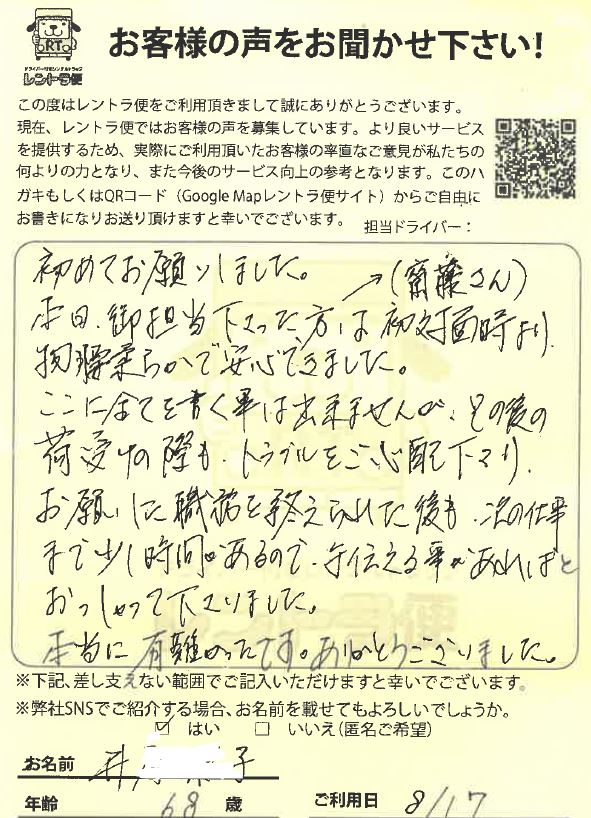 お客様の声をお聞かせ下さい!
RT
ドライバー付きレンタルトラック
レントラ便
この度はレントラ便をご利用頂きまして誠にありがとうございます。
現在、レントラ便ではお客様の声を募集しています。より良いサービス
を提供するため、実際にご利用頂いたお客様の率直なご意見が私たちの
何よりの力となり、また今後のサービス向上の参考となります。このハ
ガキもしくはQRコード（Google Mapレントラ便サイト）からご自由に
お書きになりお送り頂けますと幸いでございます。
担当ドライバー：
初めてお願いしました。
→(齋藤さん)
本日、御担当下さった方は初対面時より、
物腰柔らかで安心できました。
ここに全てを書く事は出来ませんが、その後の
荷受けの際も、トラブルをご心配下さり、
お願いした職務を終えられた後も、次の仕事
まで少し時間があるので、手伝える事があればと
おっしゃって下さりました。
本当に有難かったです。ありがとうございました。
※下記、差し支えない範囲でご記入いただけますと幸いでございます。
※弊社SNSでご紹介する場合、お名前を載せてもよろしいでしょうか。
☑ はい □ いいえ(匿名ご希望)
お名前 井 子
年齢 68 歳 ご利用日 8/17